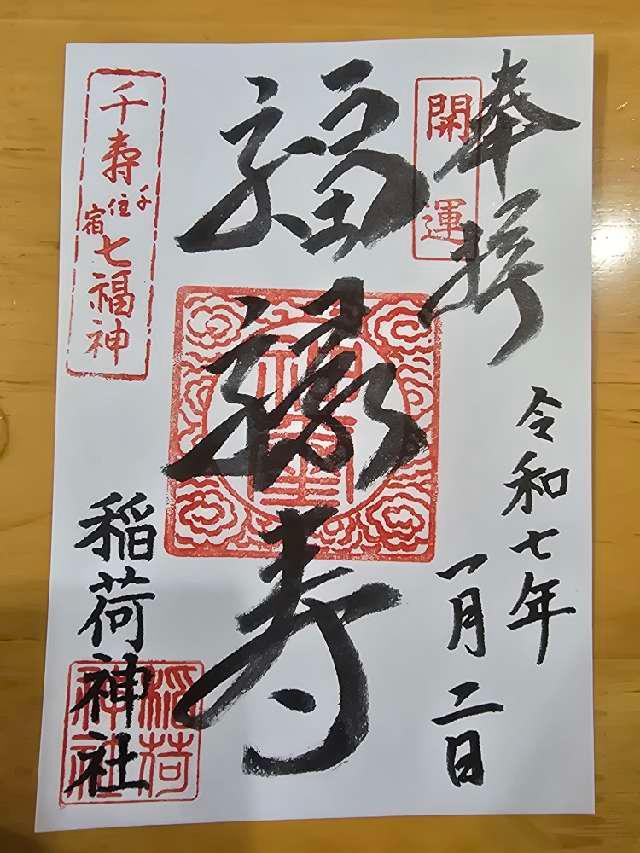 奉拝
開運
令和七年
一月二日
福禄寿
千寿七福神
千住宿
稲荷神社
稲荷神社